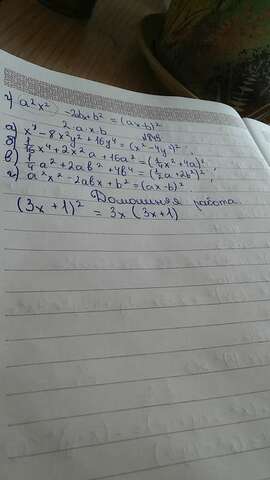 г) a²x² - 2abx + b² = (ax - b)²
2·a·x·b
а) x⁴ - 8x²y² + 16y⁴ = (x² - 4y²)²;
б) 1/16 x⁴ + 2x²a + 16a² = (1/4 x² + 4a)²;
в) 1/4 a² + 2ab² + 4b⁴ = (1/2 a + 2b²)²;
г) a²x² - 2abx + b² = (ax - b)²
Домашняя работа.
(3x + 1)² = 3x (3x + 1)